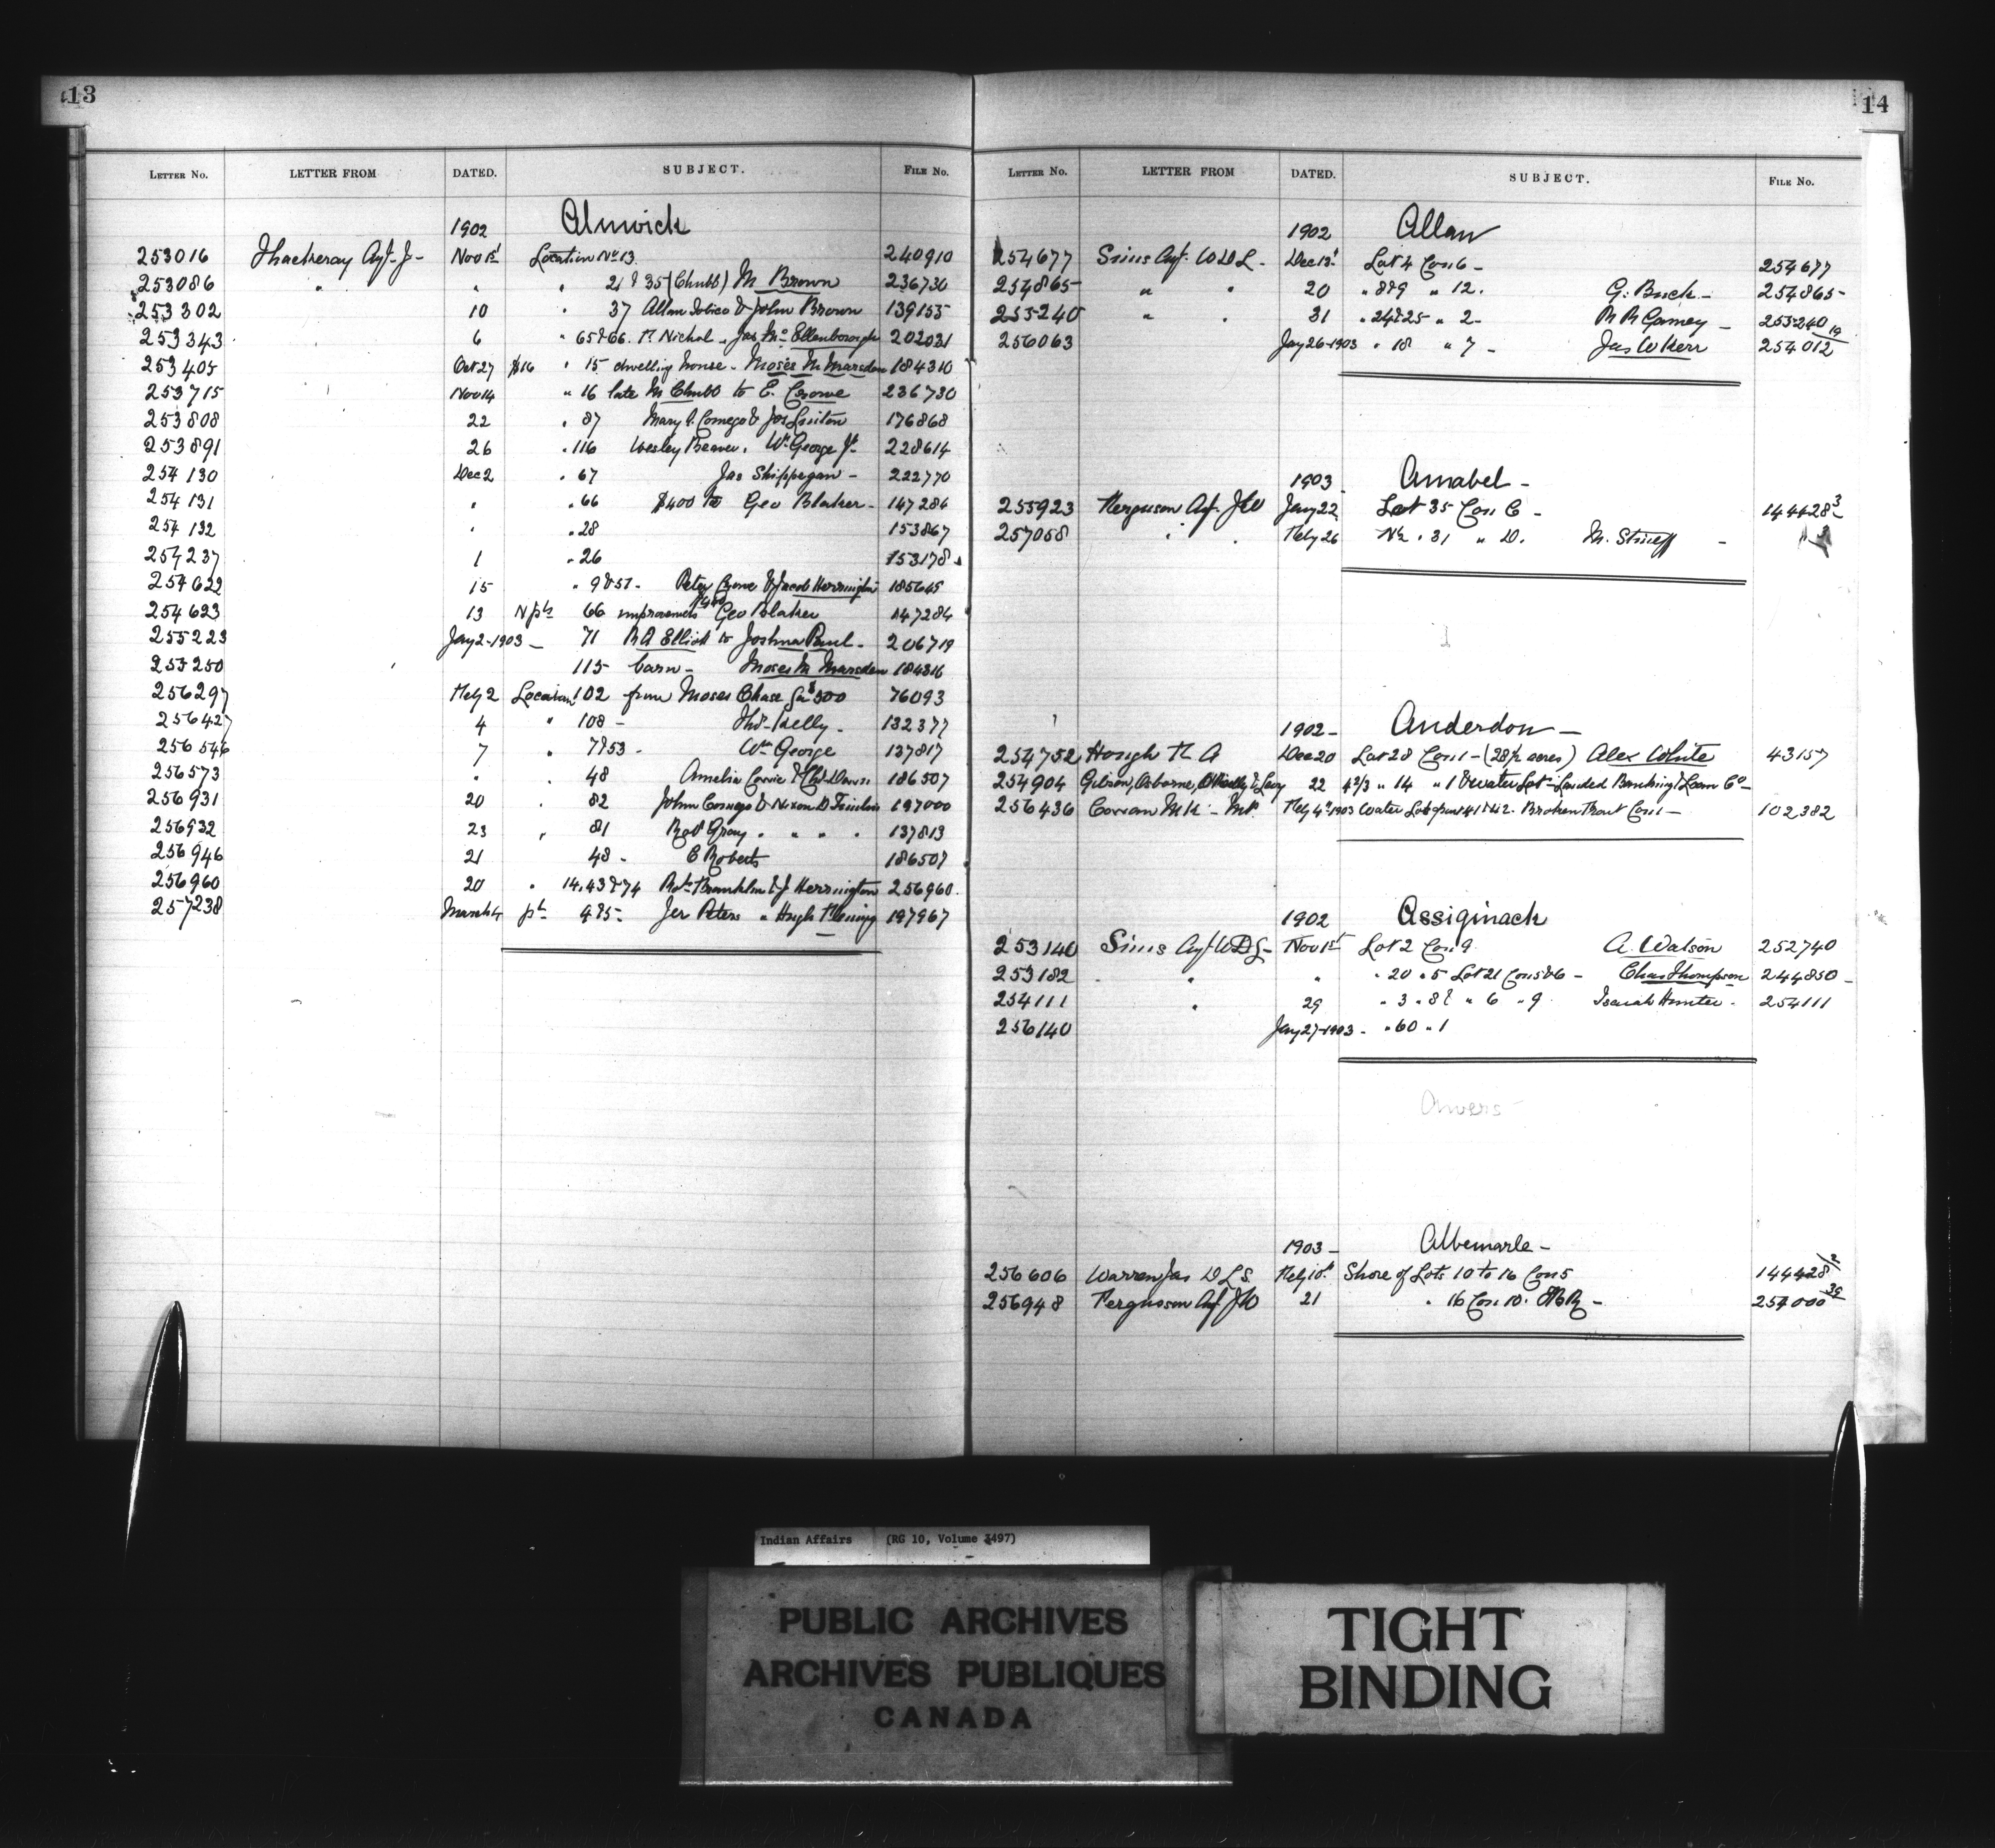 13
LETTER NO. LETTER FROM DATED. SUBJECT. FILE NO.
1902 Alnwick
253016 Thackeray Agt. J. Nov 1st Location No 13 240910
253086 " " " 21 & 35 (Chubb) M. Brown 236730
253302 10 " 37 Allan Tobico & John Brown 139155
253343 6 " 65 & 66. P. Nichol Jas Mc Ellenborough 202031
253405 Oct 27 $16 " 15 dwelling house - Moses M. Marsden 184310
253715 Nov 14 " 16 late M Chubb to E. Crowe 236730
253808 22 " 87 Mary A. Comego & Jos 176868
253891 26 " 116 Wesley Beaver. Wm George Jr. 228614
254130 Dec 2 " 67 Jas Skippegan - 222770
254131 " " 66 $400 to Geo Blaker - 147284
254132 " " 28 153867
254237 1 " 26 153178
254622 15 " 9 & 51 - Peter Crowe & Jacob Herrington 185645
254623 13 N pt 66 improvements $400 Geo Blaker 147284
255223 Jany 2-1903 - 71 R A Elliott to Joshua Paul - 206719
255250 115 barn - Moses M. Marsden 184316
256297 Feby 2 Location 102 from Moses Chase for $500 76093
256427 4 " 108 - Thos. Kelly - 132377
256546 7 " 7 & 53 - Wm George 137817
256573 " " 48 Amelia 186507
256931 20 " 82 John Comego & Nixon D 197000
256932 23 " 81 Robt Gray " " " 137813
256946 21 48 - C Roberts 186507
256960 20 " 14, 43 & 74 Robt Franklin & J Herrington 256960
257238 March 4 pt 4 & 5 - Jer Peters " Hugh Fleming 197967
14
LETTER NO. LETTER FROM DATED. SUBJECT. FILE NO.
1902 Allan
254677 Sims Agt. W D L - Dec 13 Lot 4 Con 6 - 254677
254865 " " 20 " 8 & 9 " 12. G. Buck - 254865
255240 " " 31 " 24 & 25 " 2 - R R Gamey - 255240
256063 Jany 26-1903 " 18 " 7 - Jas W Kerr 254012 19
1903 Amabel -
255923 Ferguson Agt. J W Jany 22 Lot 35 Con C - 144428 3
257058 " " Feby 26 N½ " 31 " D. M. -
1902 - Anderdon -
254752 Hough T. A Dec 20 Lot 28 Con 1 - (28½ acres) Alex White 43157
254904 Gibson, Osborne, O'Reilly & Levy 22 4 2/3 " 14 " 1 & Water Lot - Landed Banking & Loan Co
256436 Cowan M K - MP. Feby 4th 1903 Water Lot front 41 & 42. Broken Front Con 1 - 102382
1902 Assiginack
253140 Sims Agt W D L - Nov 1st Lot 2 Con 9. A. Watson 252740
253182 " " " 20 " 5 Lot 21 Con 5 & 6 - Chas Thompson 244850 -
254111 " 29 " 3 " 8 & " 6 " 9. Isaiah Hunter - 254111
256140 Jany 27-1903 - " 60 " 1
1903 - Albemarle -
256606 Warren Jas D L S. Feby 10th Shore of Lots 10 to 16 Con 5 144428 2
256948 Fergusson Agt J W 21 " 16 Con 10. 254000 39
Indian Affairs (RG 10, Volume 3497)
PUBLIC ARCHIVES
ARCHIVES PUBLIQUES
CANADA
TIGHT
BINDING